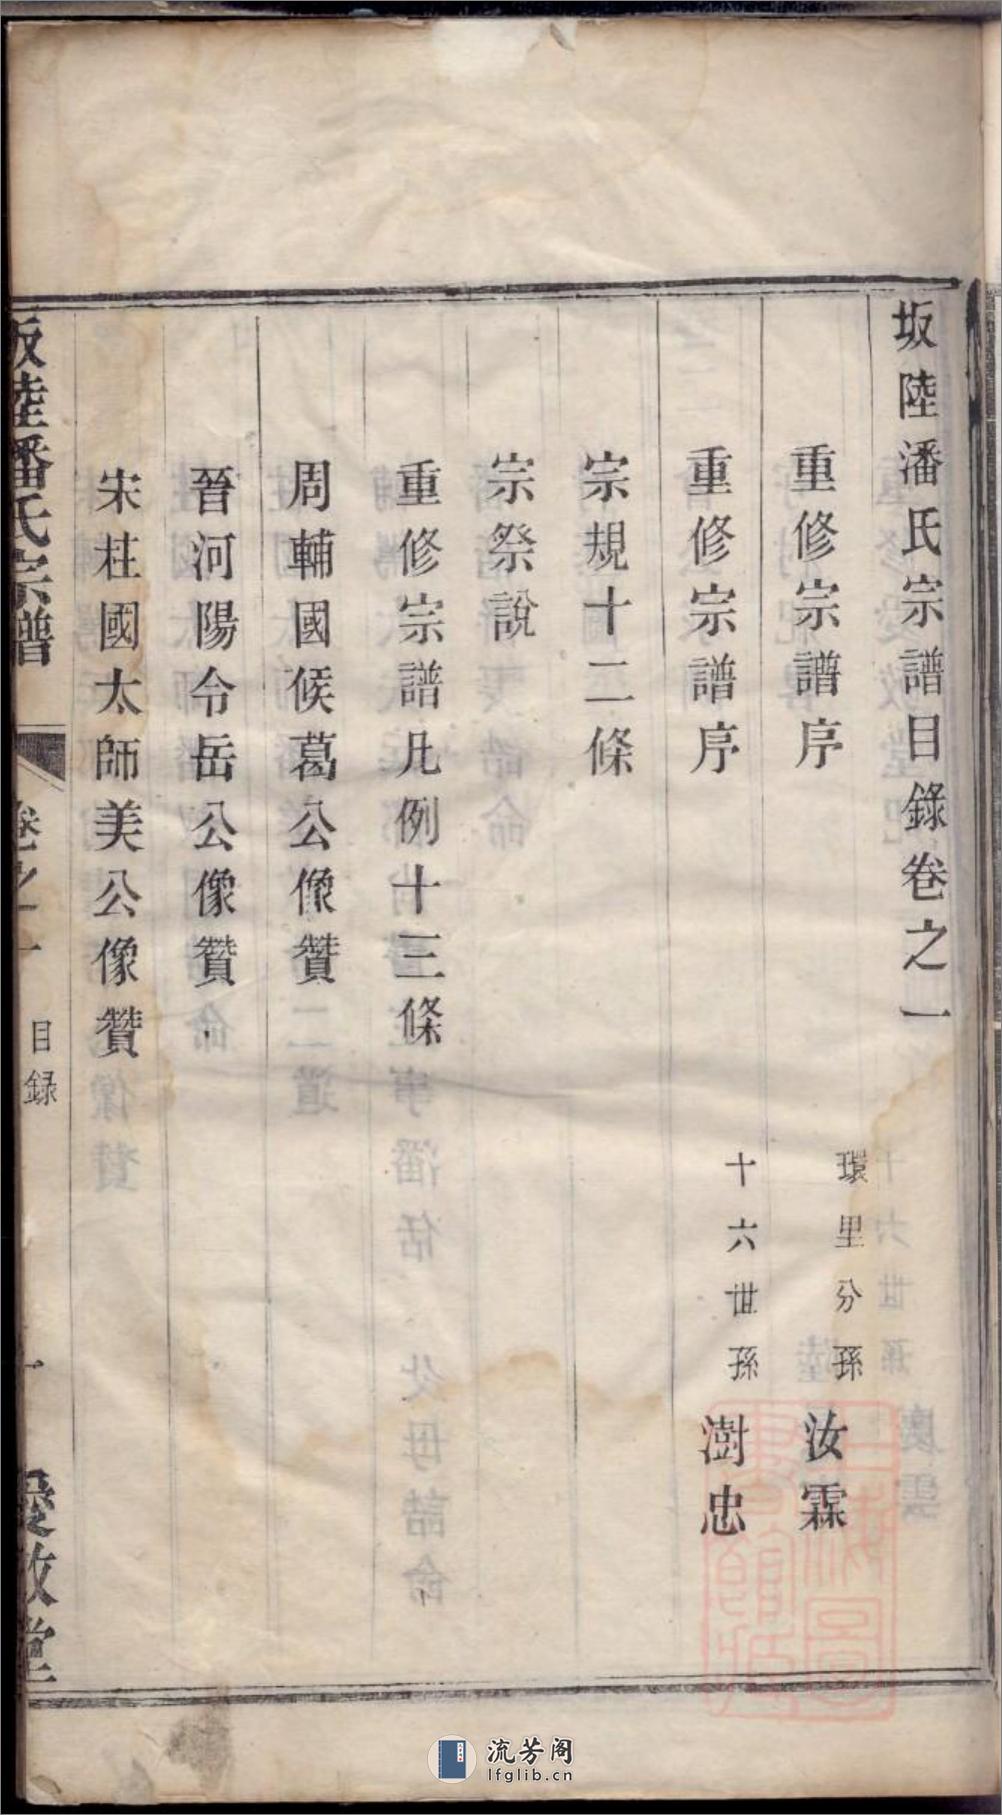 坂陸潘氏宗譜目錄卷之一
重修宗譜序 環里分孫 汝霖
重修宗譜序 十六世孫 澍忠
宗規十二條
宗祭說
重修宗譜凡例十三條
周輔國候葛公像贊
晉河陽令岳公像贊
宋柱國太師美公像贊
坂陸潘氏宗譜 卷之一 目録 一 愛敬堂
流芳阁
lfglib.cn